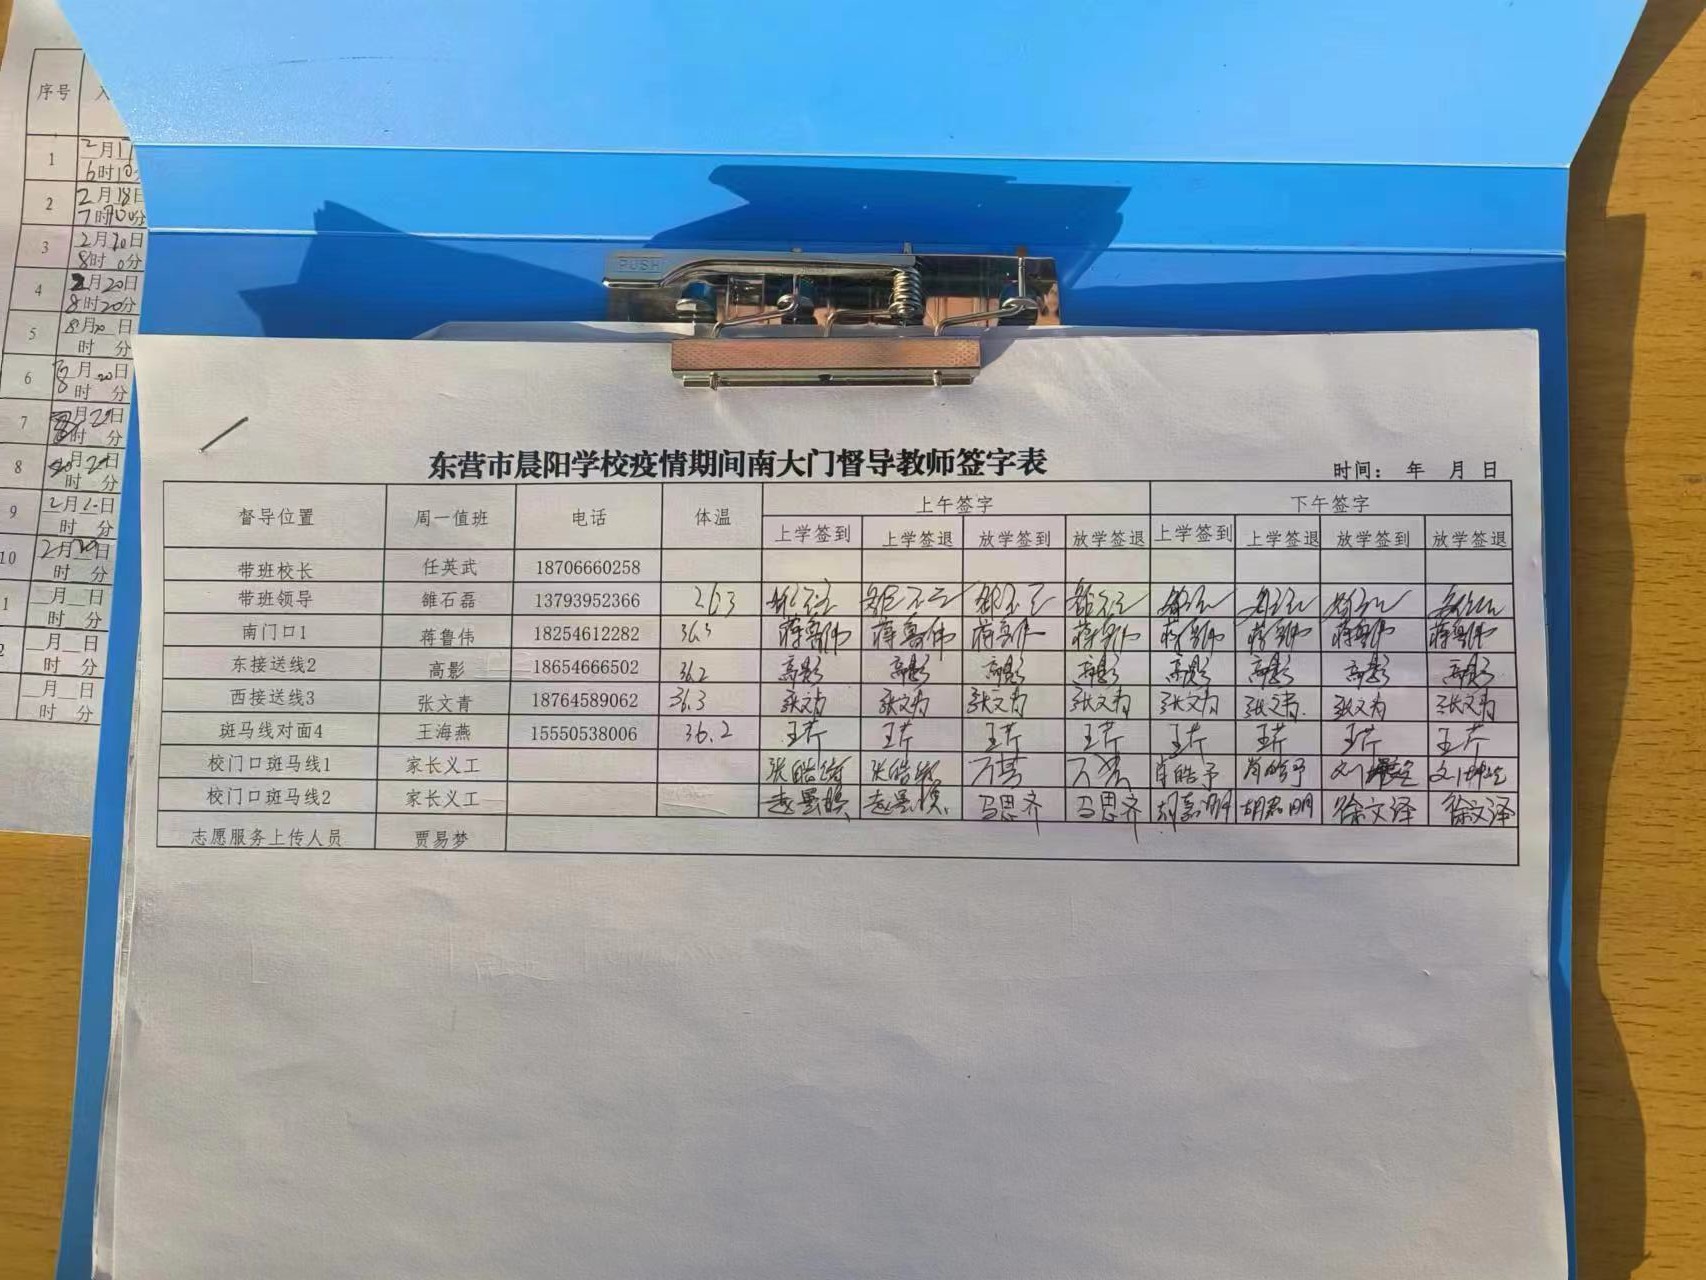 序号
1 2月17
6时10分
2 2月18日
7时00分
3 2月20日
8时0分
4 2月20日
8时20分
5 8月20日
时 分
6 8月20日
时 分
7 月2日
时 分
8 月2日
时 分
9 2月2日
时 分
10 2月20日
时 分
1 月 日
时 分
2 月 日
时 分
月 日
时 分
PUSH
东营市晨阳学校疫情期间南大门督导教师签字表
时间: 年 月 日
督导位置 周一值班 电话 体温 上午签字 下午签字
上学签到 上学签退 放学签到 放学签退 上学签到 上学签退 放学签到 放学签退
带班校长 任英武 18706660258
带班领导 雒石磊 13793952366 263
南门口1 蒋鲁伟 18254612282 36.3 蒋鲁伟 蒋鲁伟 蒋鲁伟 蒋鲁伟 蒋鲁伟 蒋鲁伟 蒋鲁伟 蒋鲁伟
东接送线2 高影 18654666502 36.2 高影 高影 高影 高影 高影 高影 高影 高影
西接送线3 张文青 18764589062 36.3 张文青 张文青 张文青 张文青 张文青 张文青 张文青 张文青
斑马线对面4 王海燕 15550538006 36.2 王芹 王芹 王芹 王芹 王芹 王芹 王芹 王芹
校门口斑马线1 家长义工 肖皓予 肖皓予
校门口斑马线2 家长义工 马思齐 马思齐 胡嘉明 胡君明 徐文泽 徐文泽
志愿服务上传人员 贾易梦